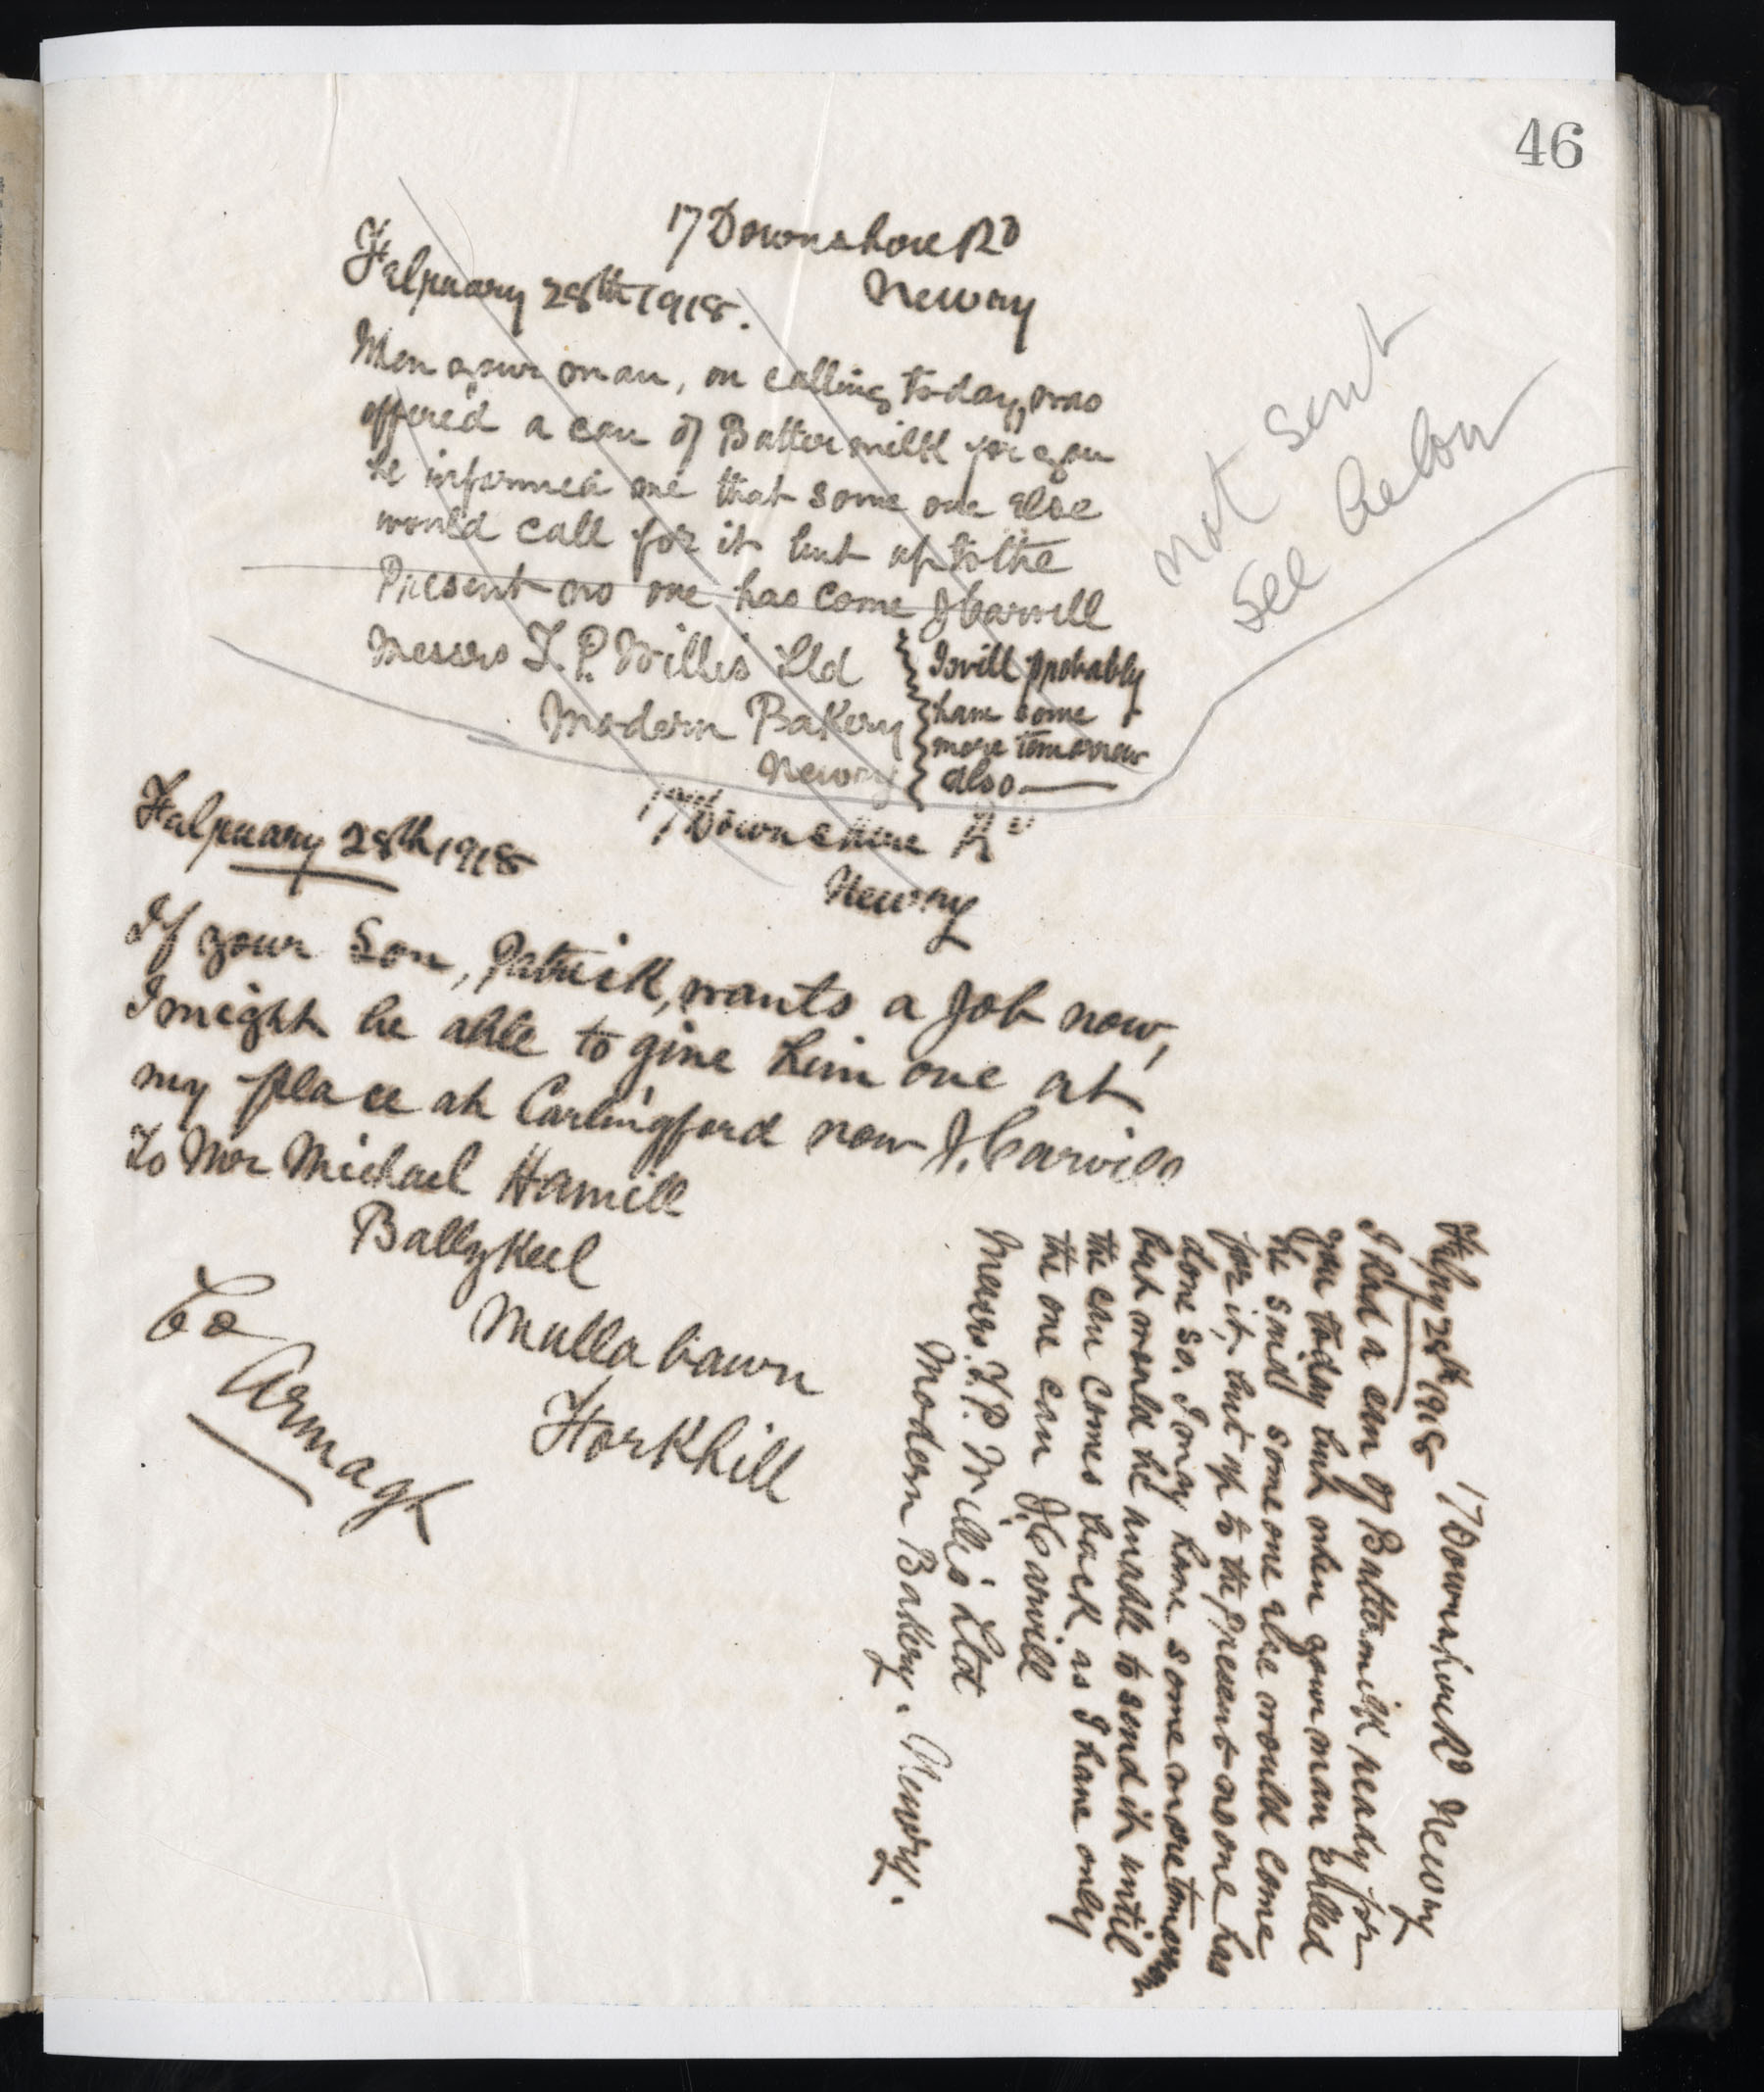 46
17 Downshire Rd
Newry
February 28th 1918.
When your man, on calling today, was
offered a can of Buttermilk for you
he informed me that some one else
would call for it but up to the
Present no one has come J Carvill
Messrs T. P. Willis Ltd
Modern Bakery
Newry
I will probably
have some
more tomorrow
also
not sent
see below
17 Downshire Rd
Newry
February 28th 1918
If your Son, Patrick, wants a Job now,
I might be able to give him one at
my place at Carlingford now J. Carvill
To Mr Michael Hamill
Ballykeel
Mullabawn
Forkhill
Co
Armagh
17 Downshire Rd Newry
Feby 28th 1918
I had a can of Buttermilk ready for
you today but when your man called
he said some one else would come
for it, but up to the present no one has
done so. I may have some more tomorrow
but would be unable to send it until
the can comes back as I have only
the one can J. Carvill
Messrs. T. P. Willis Ltd
Modern Bakery. Newry.